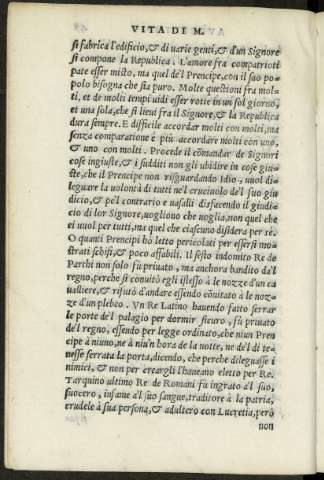 VITA DI M.
si fabrica l'edificio,& di varie genti,& d'un Signore
si compone la Republica. L'amore fra compatrioti
pate esser misto, ma quel de'l Prencipe,con il suo po-
polo bisogna che sia puro. Molte questioni fra mol-
ti, et de molti tempi uidi esser rotte in un sol giorno,
et una sola,che si lieui fra il Signore,& la Republica
dura sempre. E difficile accordar molti con molti,ma
senza comparatione è più accordare molti con uno,
& uno con molti. Procede il cõmandar de Signori
cose ingiuste,& i sudditi non gli ubidire in cose giu-
ste,che il Prencipe non risguardando Idio, uuol di-
leguare la uolontà di tutti nel cruciuolo de'l suo giu
dicio,& pe'l contrario e uasalli disfacendo il giudi-
cio di lor Signore,uogliono che uoglia,non quel che
ei uuol per tutti,ma quel che ciascuno disidera per sè.
O quanti Prencipi hò letto pericolati per essersi mo
strati schifi,& poco affabili. Il sesto indomito Re de
Parthi non solo fù priuato, ma anchora bandito da'l
regno,perche si conuitò egli istesso à le nozze d'un ca
ualliere,& rifiutò d'andare essendo cõuitato à le noz-
ze d'un plebeo. Vn Re Latino hauendo fatto serrar
le porte de'l palagio per dormir sicuro, fù priuato
de'l regno, essendo per legge ordinato,che niun Pren
cipe à niuno,ne à niun'hora de la notte, ne de'l dì te-
nesse serrata la porta,dicendo, che perche dileguasse i
nimici, & non per creargli l'haueano eletto per Re.
Tarquino ultimo Re de Romani fù ingrato al suo,
suocero, infame al suo sangue,traditore à la patria,
crudele à sua persona,& adultero con Lucretia,però
non